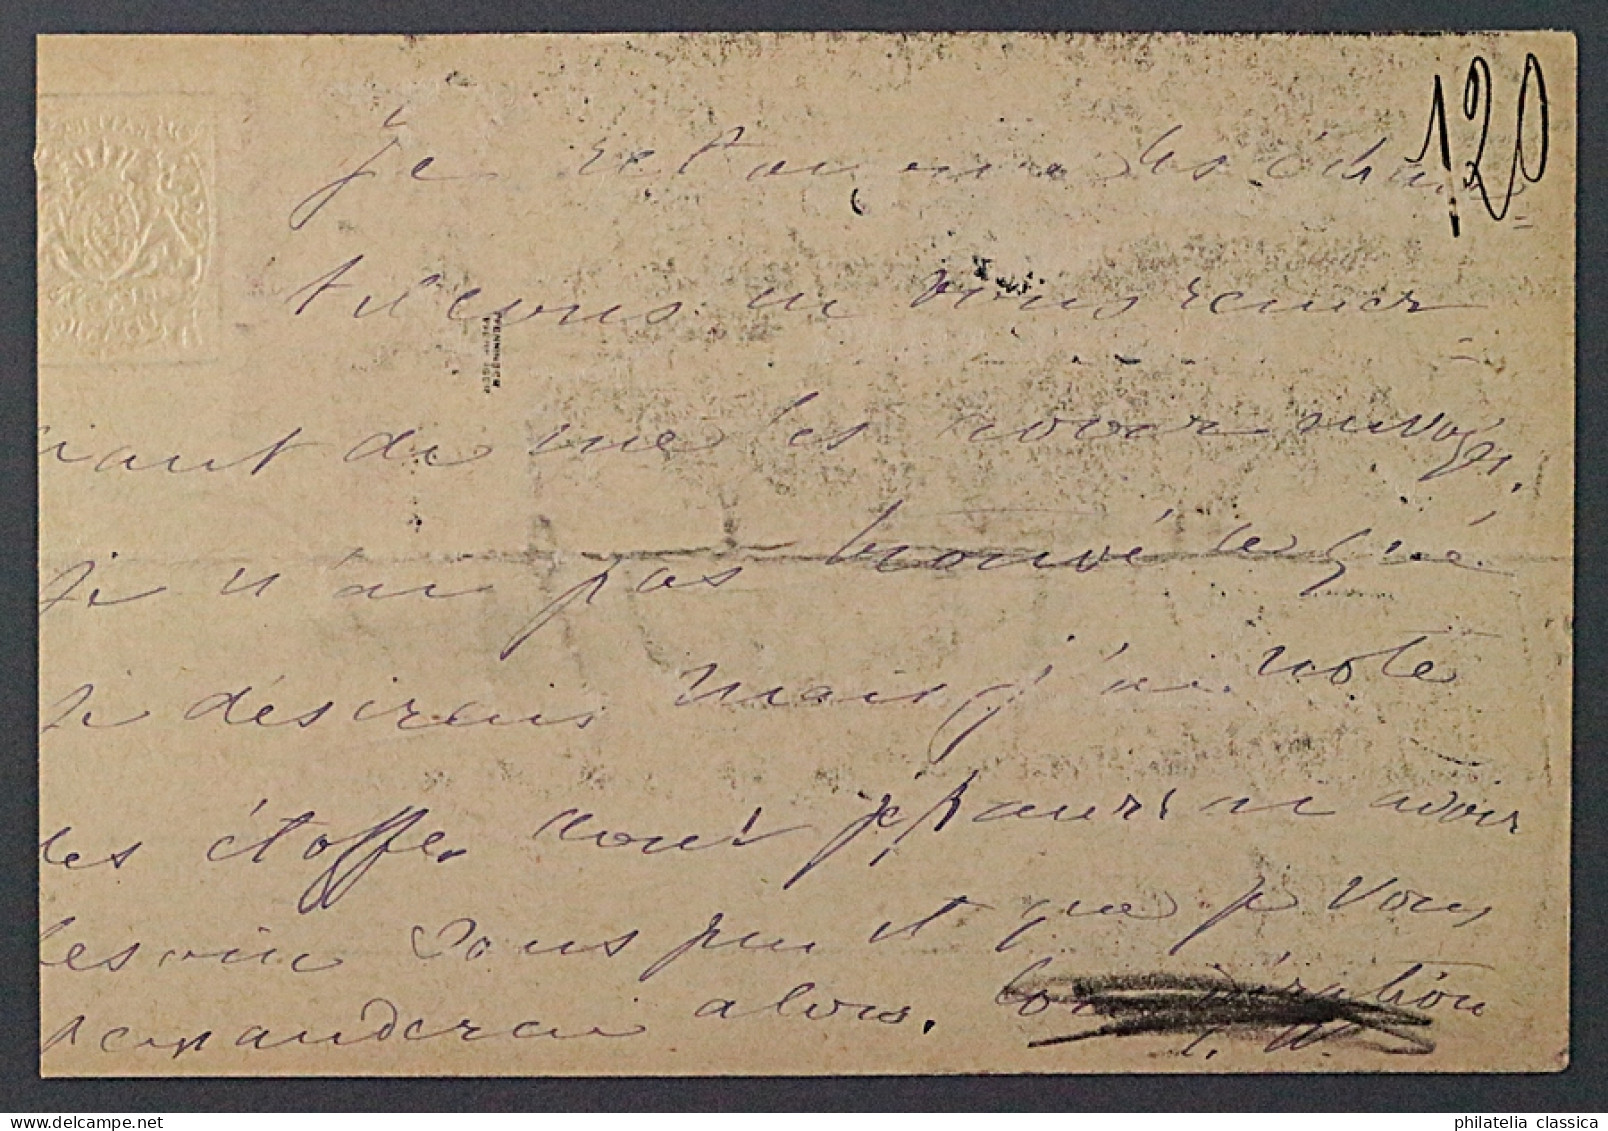 120
Je retourne les échan
tillons en vous remer
ciant de me les avoir envoyés,
je n'ai pas trouvé ce que
je désirais mais j'ai noté
des étoffes dont j'aurai à avoir
besoin sous peu et que je vous
demanderai alors.
philatelia classica